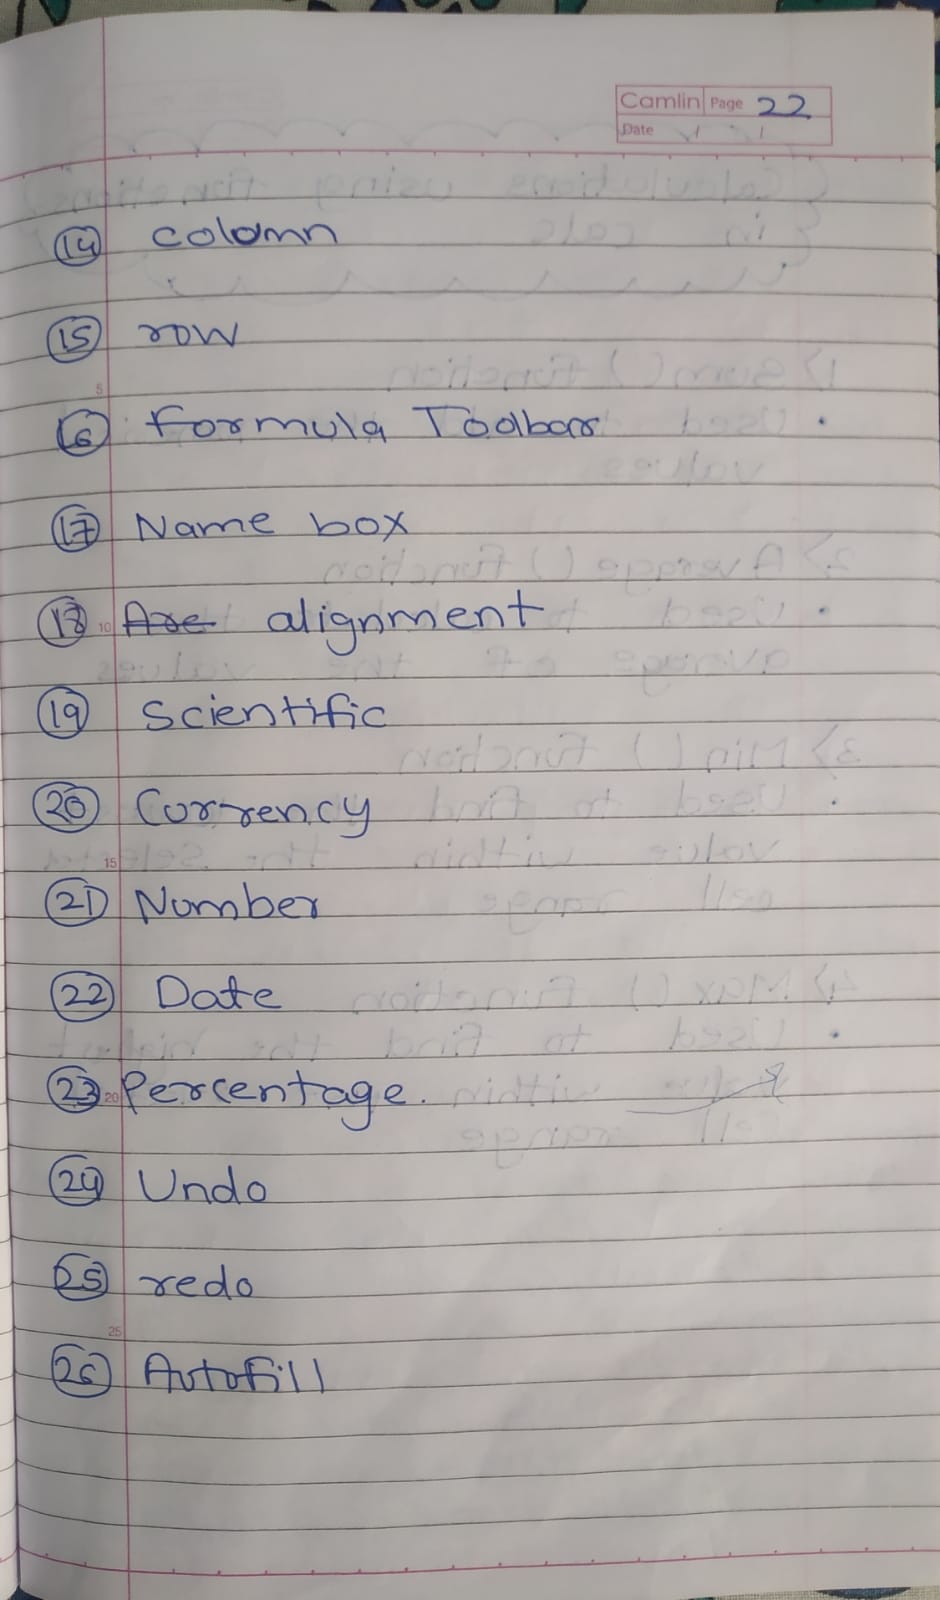 Camlin Page 22
Date
14 colomn
15 row
5
16 Formula Toolbar
17 Name box
18 10 Are alignment
19 Scientific
20 Currency
15
21 Number
22 Date
23 20 Percentage.
24 Undo
25 redo
25
26 Autofill